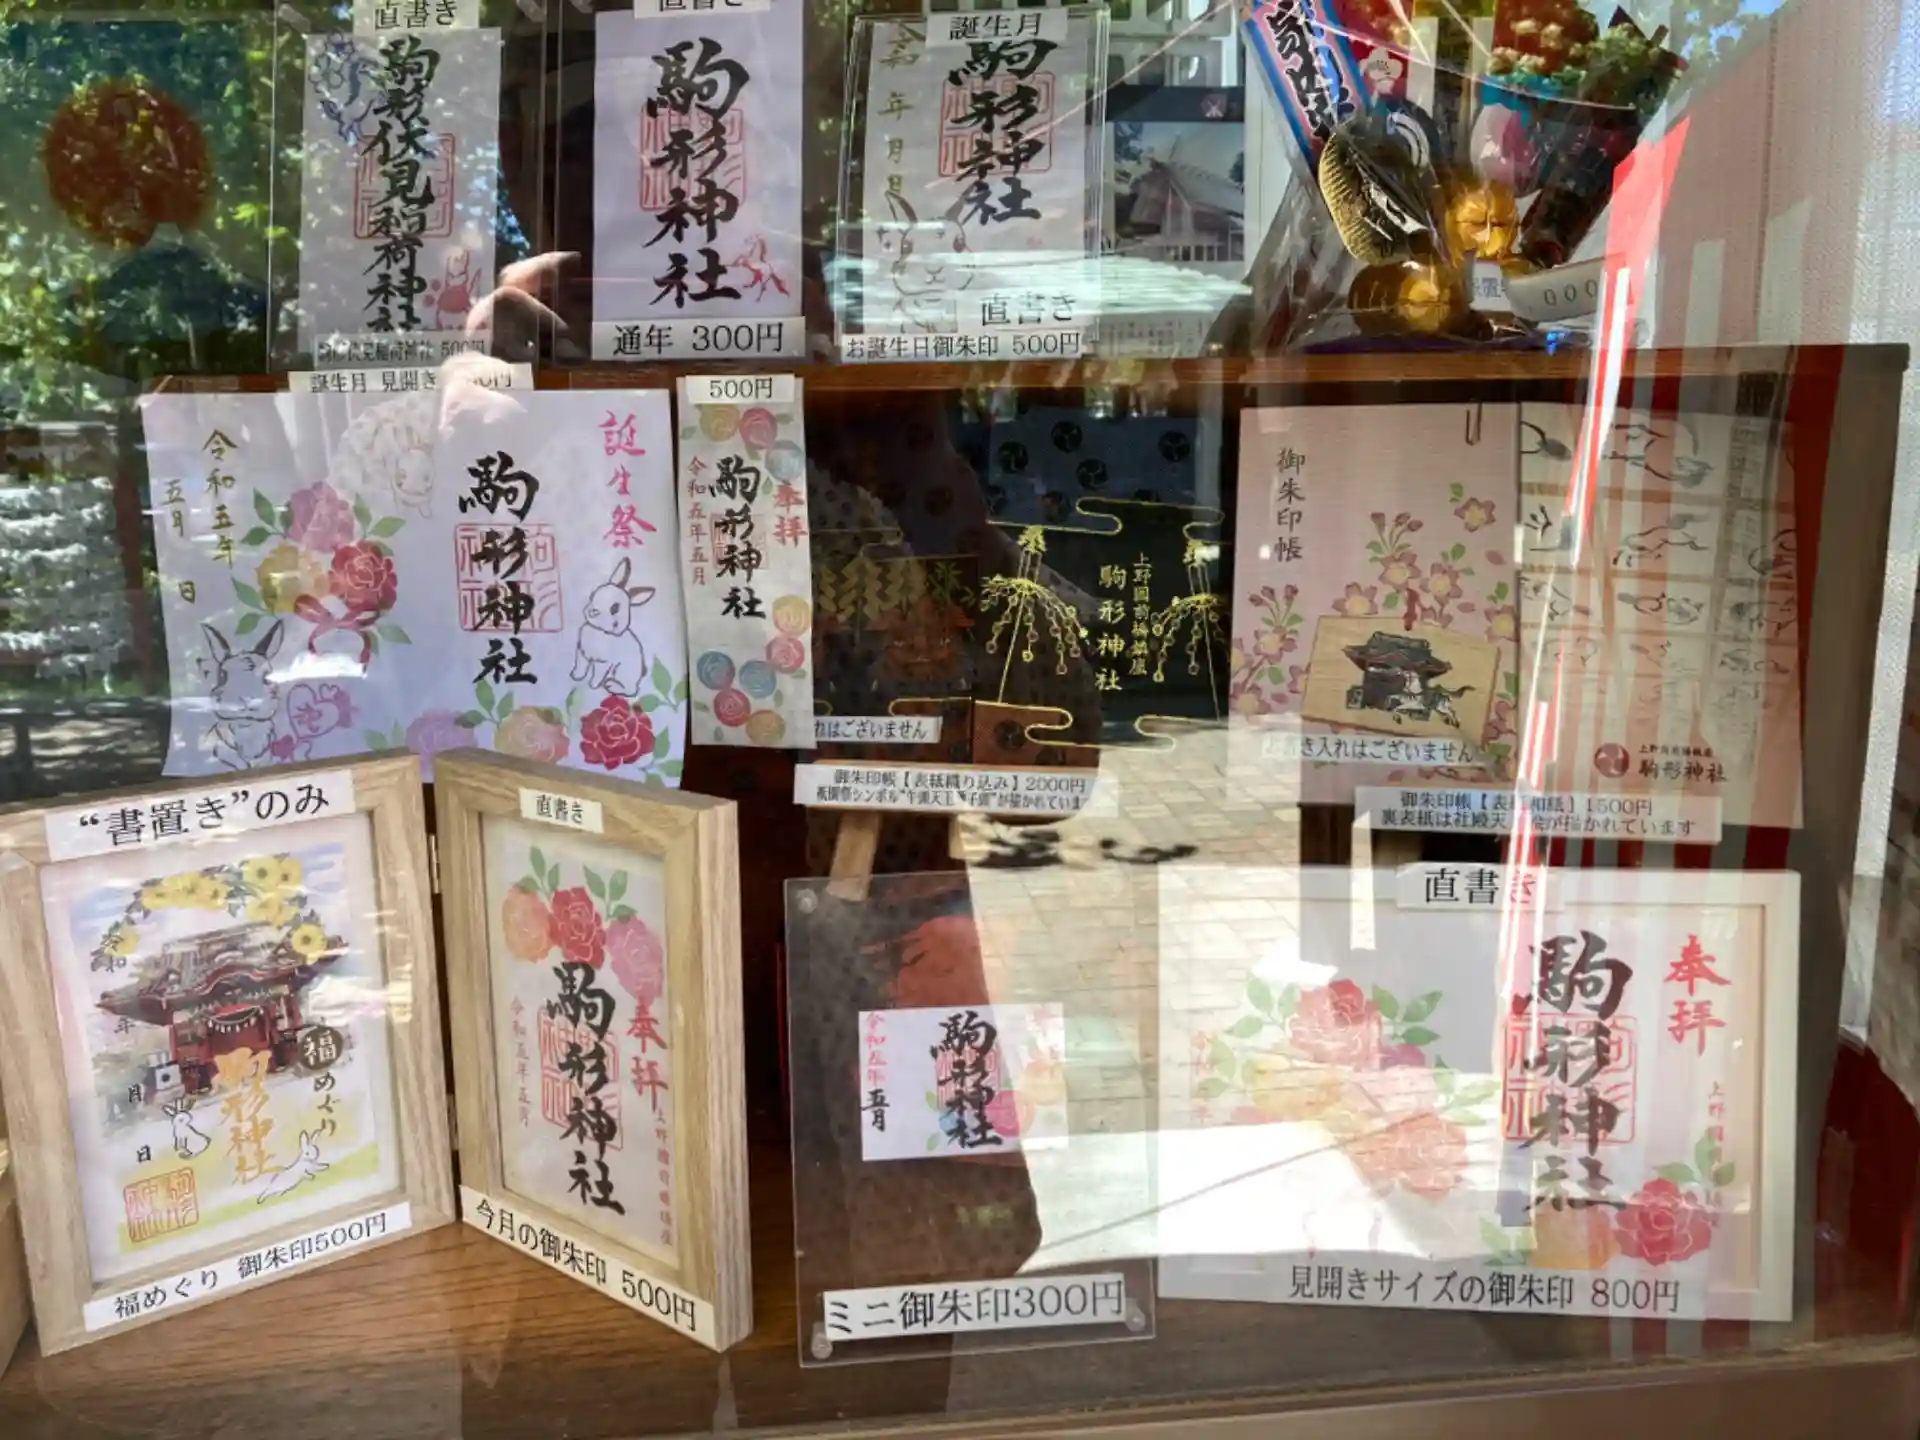 直書き
駒形伏見稲荷神社
駒形伏見稲荷神社 500円
直書き
駒形神社
通年 300円
誕生月
令和 年 月 日
駒形神社
直書き
お誕生日御朱印 500円
家内
000
誕生月 見開き
誕生祭
駒形神社
令和五年
五月 日
500円
奉拝
駒形神社
令和五年五月
上野國前橋鎮座
駒形神社
れはございません
御朱印帳【表紙織り込み】2000円
御朱印帳
お書き入れはございません
駒形神社
御朱印帳【表紙和紙】1500円
裏表紙は社殿天
が描かれています
“書置き”のみ
令和 年 月 日
福めぐり
駒形神社
福めぐり 御朱印500円
直書き
奉拝
上野國前橋鎮座
駒形神社
令和五年五月
今月の御朱印 500円
駒形神社
令和五年
五月
ミニ御朱印300円
直書き
奉拝
駒形神社
見開きサイズの御朱印 800円